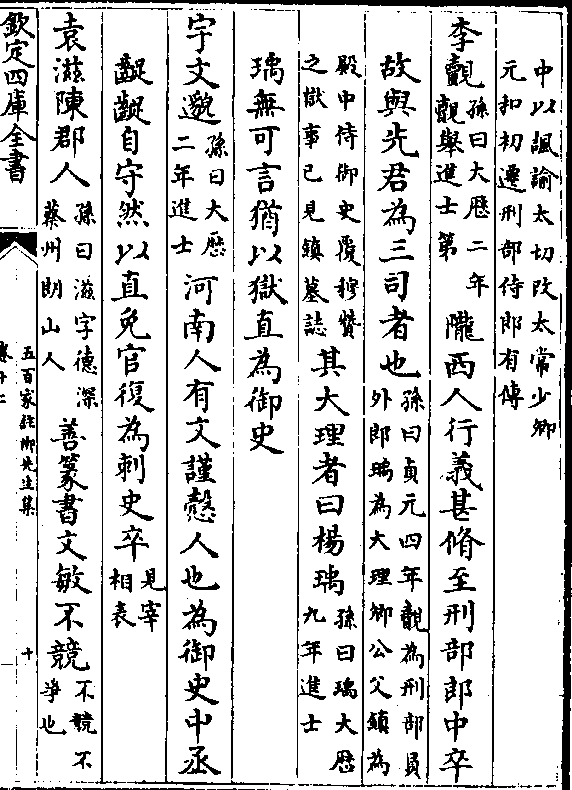 中以諷諭太切改太常少卿
元和初遷刑部侍郎有傳
李觀
孫曰大厯二年
觀舉進士第
隴西人行義甚脩至刑部郎中卒
故與先君為三司者也
孫曰貞元四年觀為刑部員
外郎瑀為大理卿公父鎮為
殿中侍御史覆穆贊
之獄事已見鎮墓誌
其大理者曰楊瑀
孫曰瑀大厯
九年進士
瑀無可言猶以獄直為御史
宇文邈
孫曰大厯
二年進士
河南人有文謹慤人也為御史中丞
齪齪自守然以直免官復為刺史卒
見宰
相表
袁滋陳郡人
孫曰滋字德深
蔡州朗山人
善篆書文敏不競
不競不
爭也
欽定四庫全書
五百家註柳先生集
十